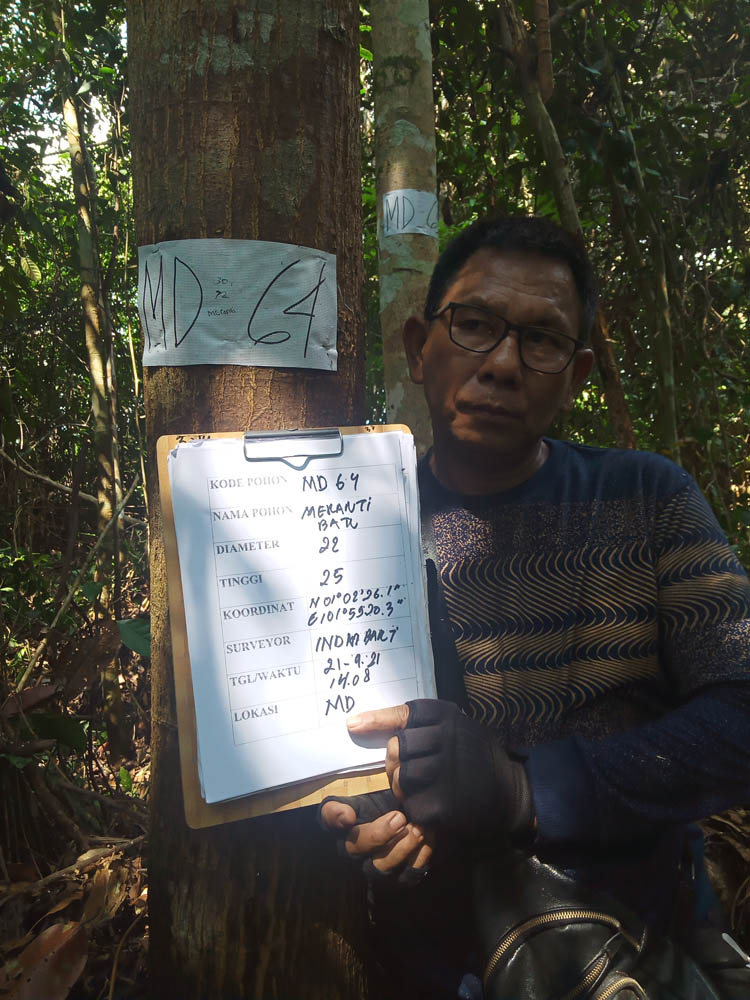 MD 64
30
72
MD-6
KODE POHON MD 64
NAMA POHON MERANTI
BATU
DIAMETER 22
TINGGI 25
KOORDINAT N 01°02'26.1"
E 101°55'20.3"
SURVEYOR INDRA BARI
TGL/WAKTU 21-9-21
14.08
LOKASI MD